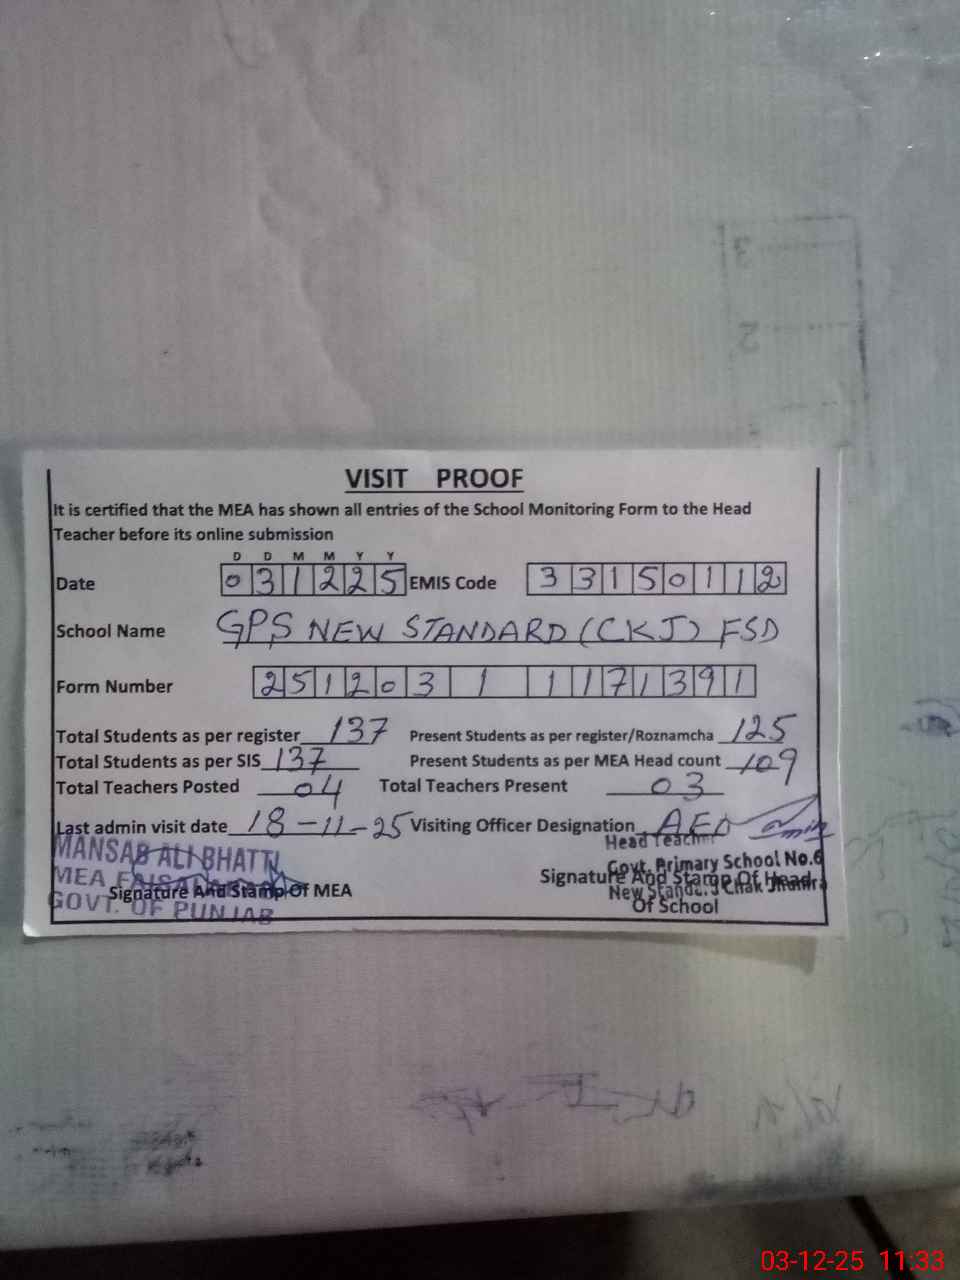 3
2
VISIT PROOF
It is certified that the MEA has shown all entries of the School Monitoring Form to the Head
Teacher before its online submission
D D M M Y Y
Date 031225 EMIS Code 33150112
School Name GPS NEW STANDARD (CKJ) FSD
Form Number 251203 1 1171391
Total Students as per register 137 Present Students as per register/Roznamcha 125
Total Students as per SIS 137 Present Students as per MEA Head count 109
Total Teachers Posted 04 Total Teachers Present 03
Last admin visit date 18-11-25 Visiting Officer Designation AEO
Head Teacher
MANSAB ALI BHATTI
Govt. Primary School No.6
MEA FAISALABAD
Signature And Stamp Of MEA
Signature And Stamp Of Head
New Chak Jhumra
GOVT. OF PUNJAB
Of School
03-12-25 11:33